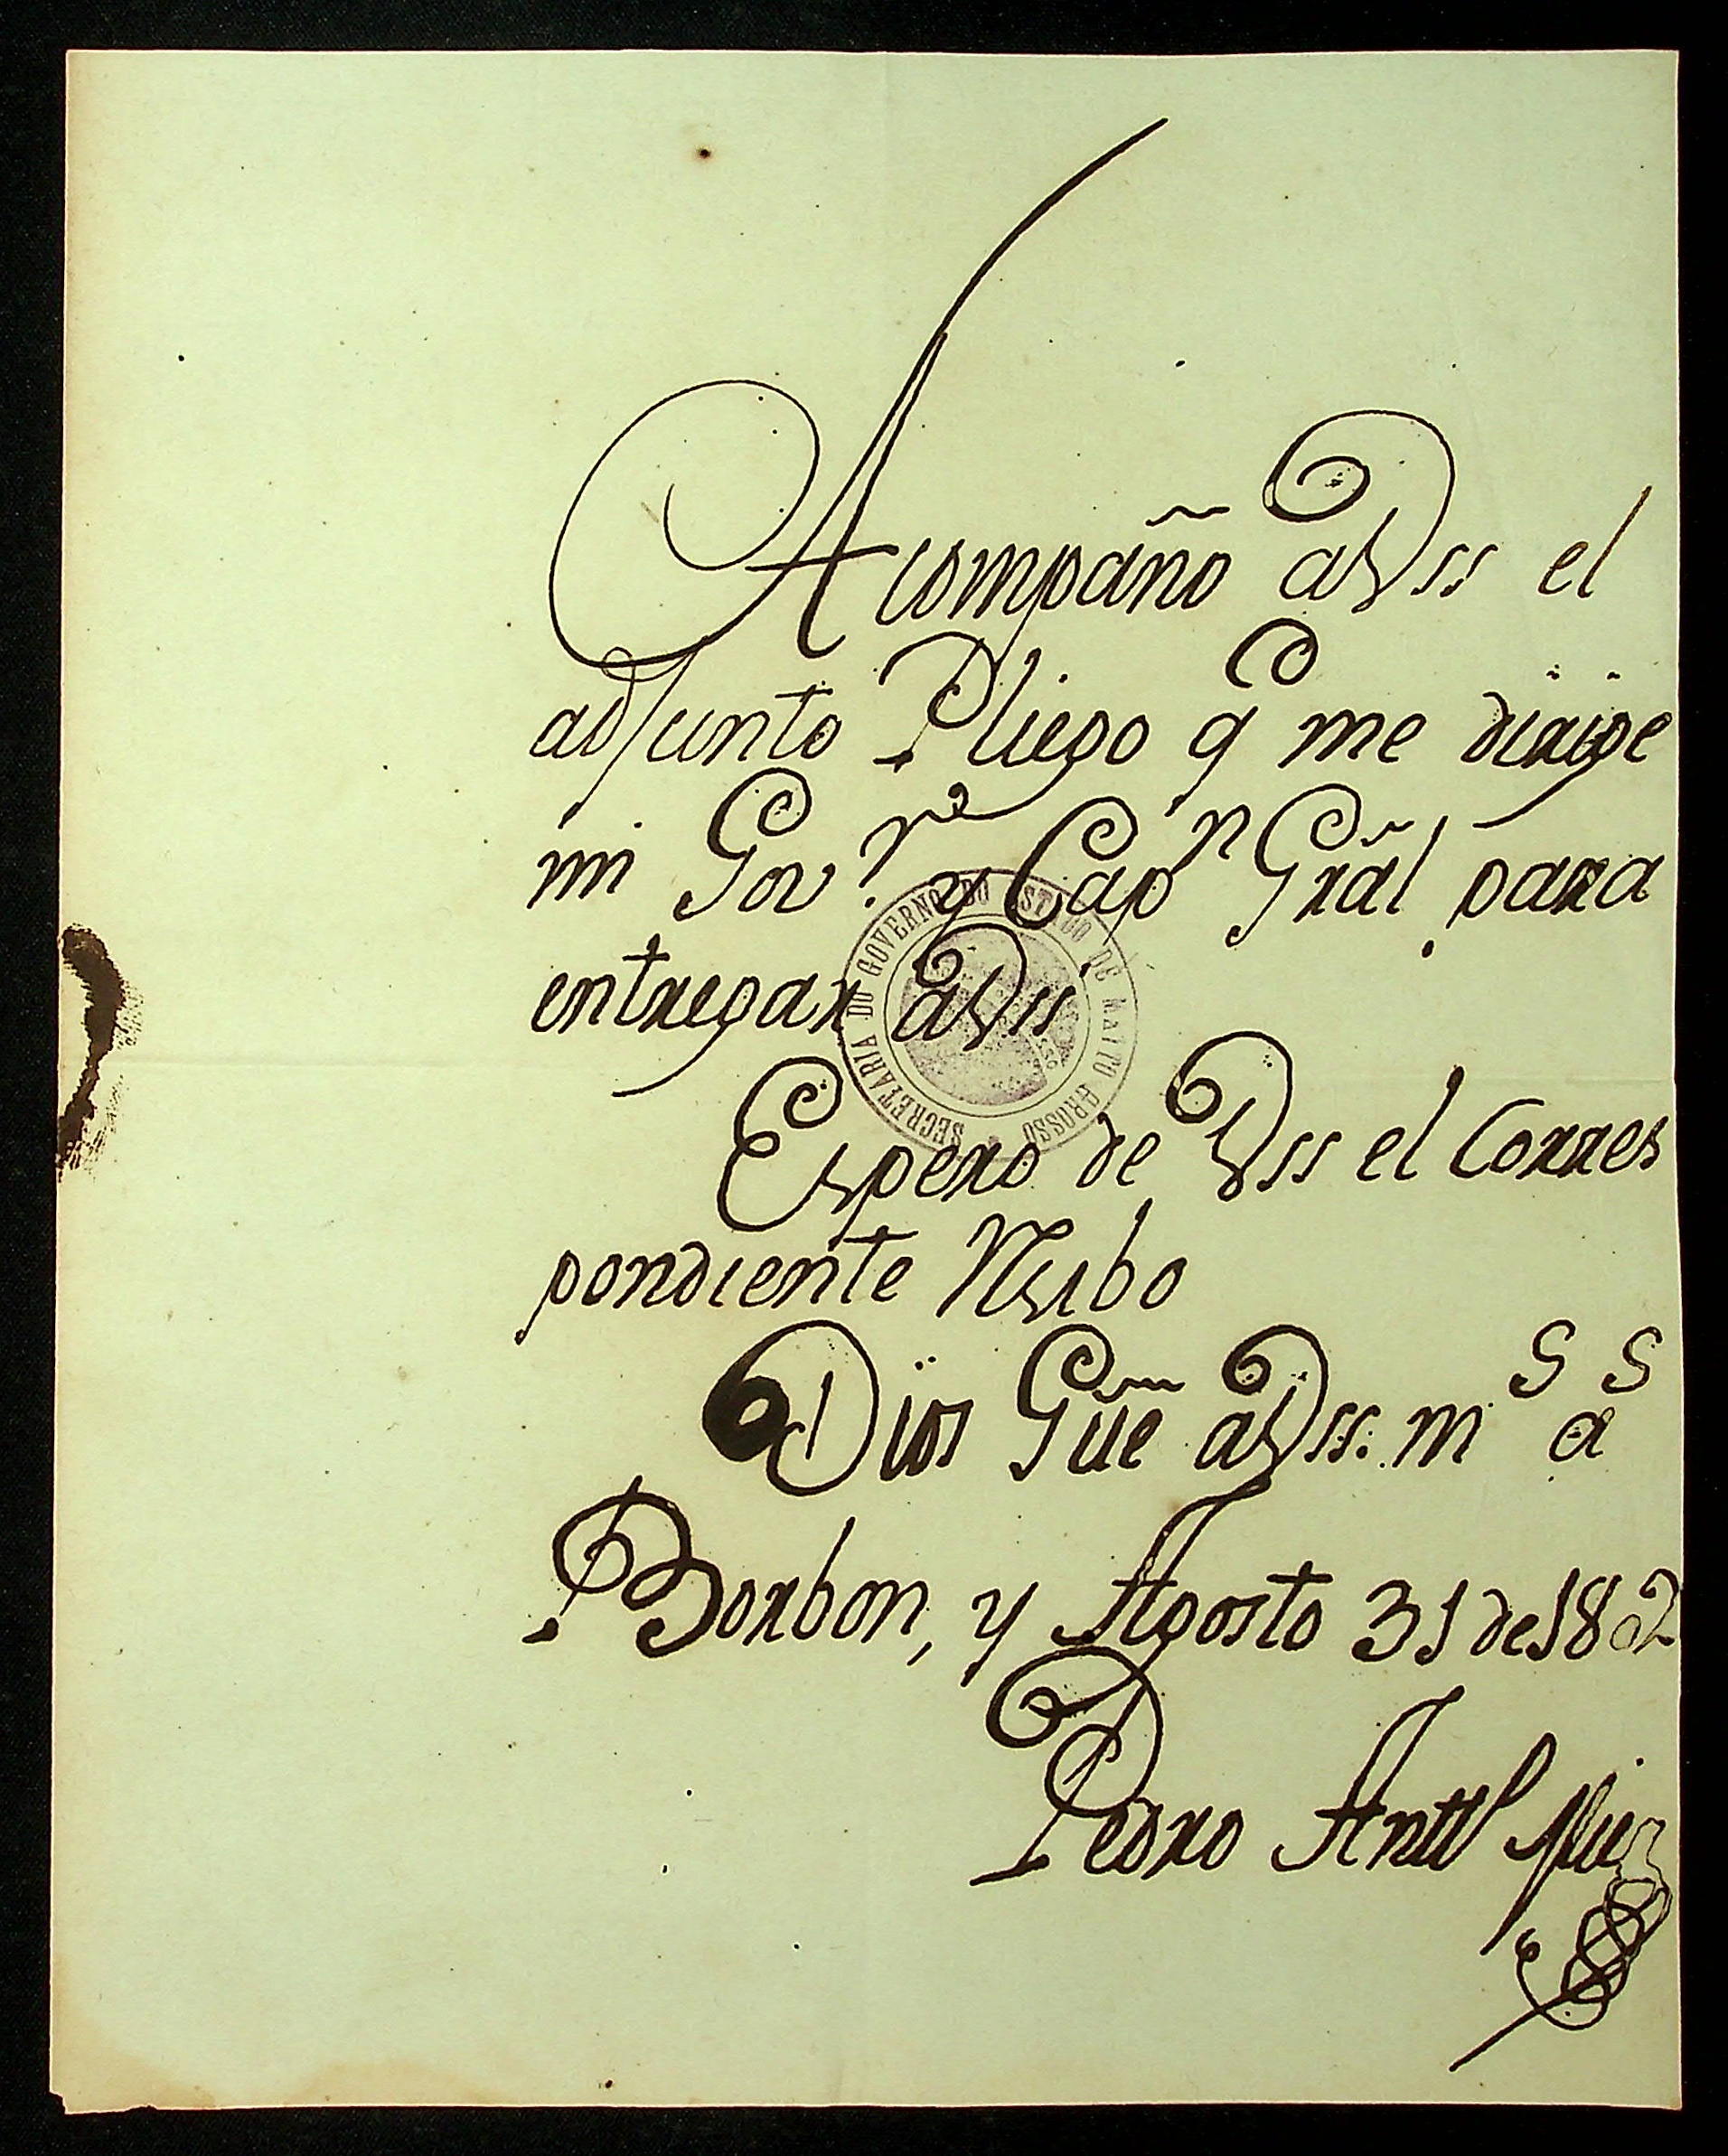 Acompaño aVss el
adjunto Pliego q^e me dirige
mi Gov.^r y Cap^n Grãl para
entregar aVss
Espero de Vss el Corres
pondiente Resibo
Dios Gũe aVss. m^s a^s
Borbon, y Agosto 31 de 1802
Pedro Ant^o
SECRETARIA DO GOVERNO DO ESTADO DE MATTO GROSSO